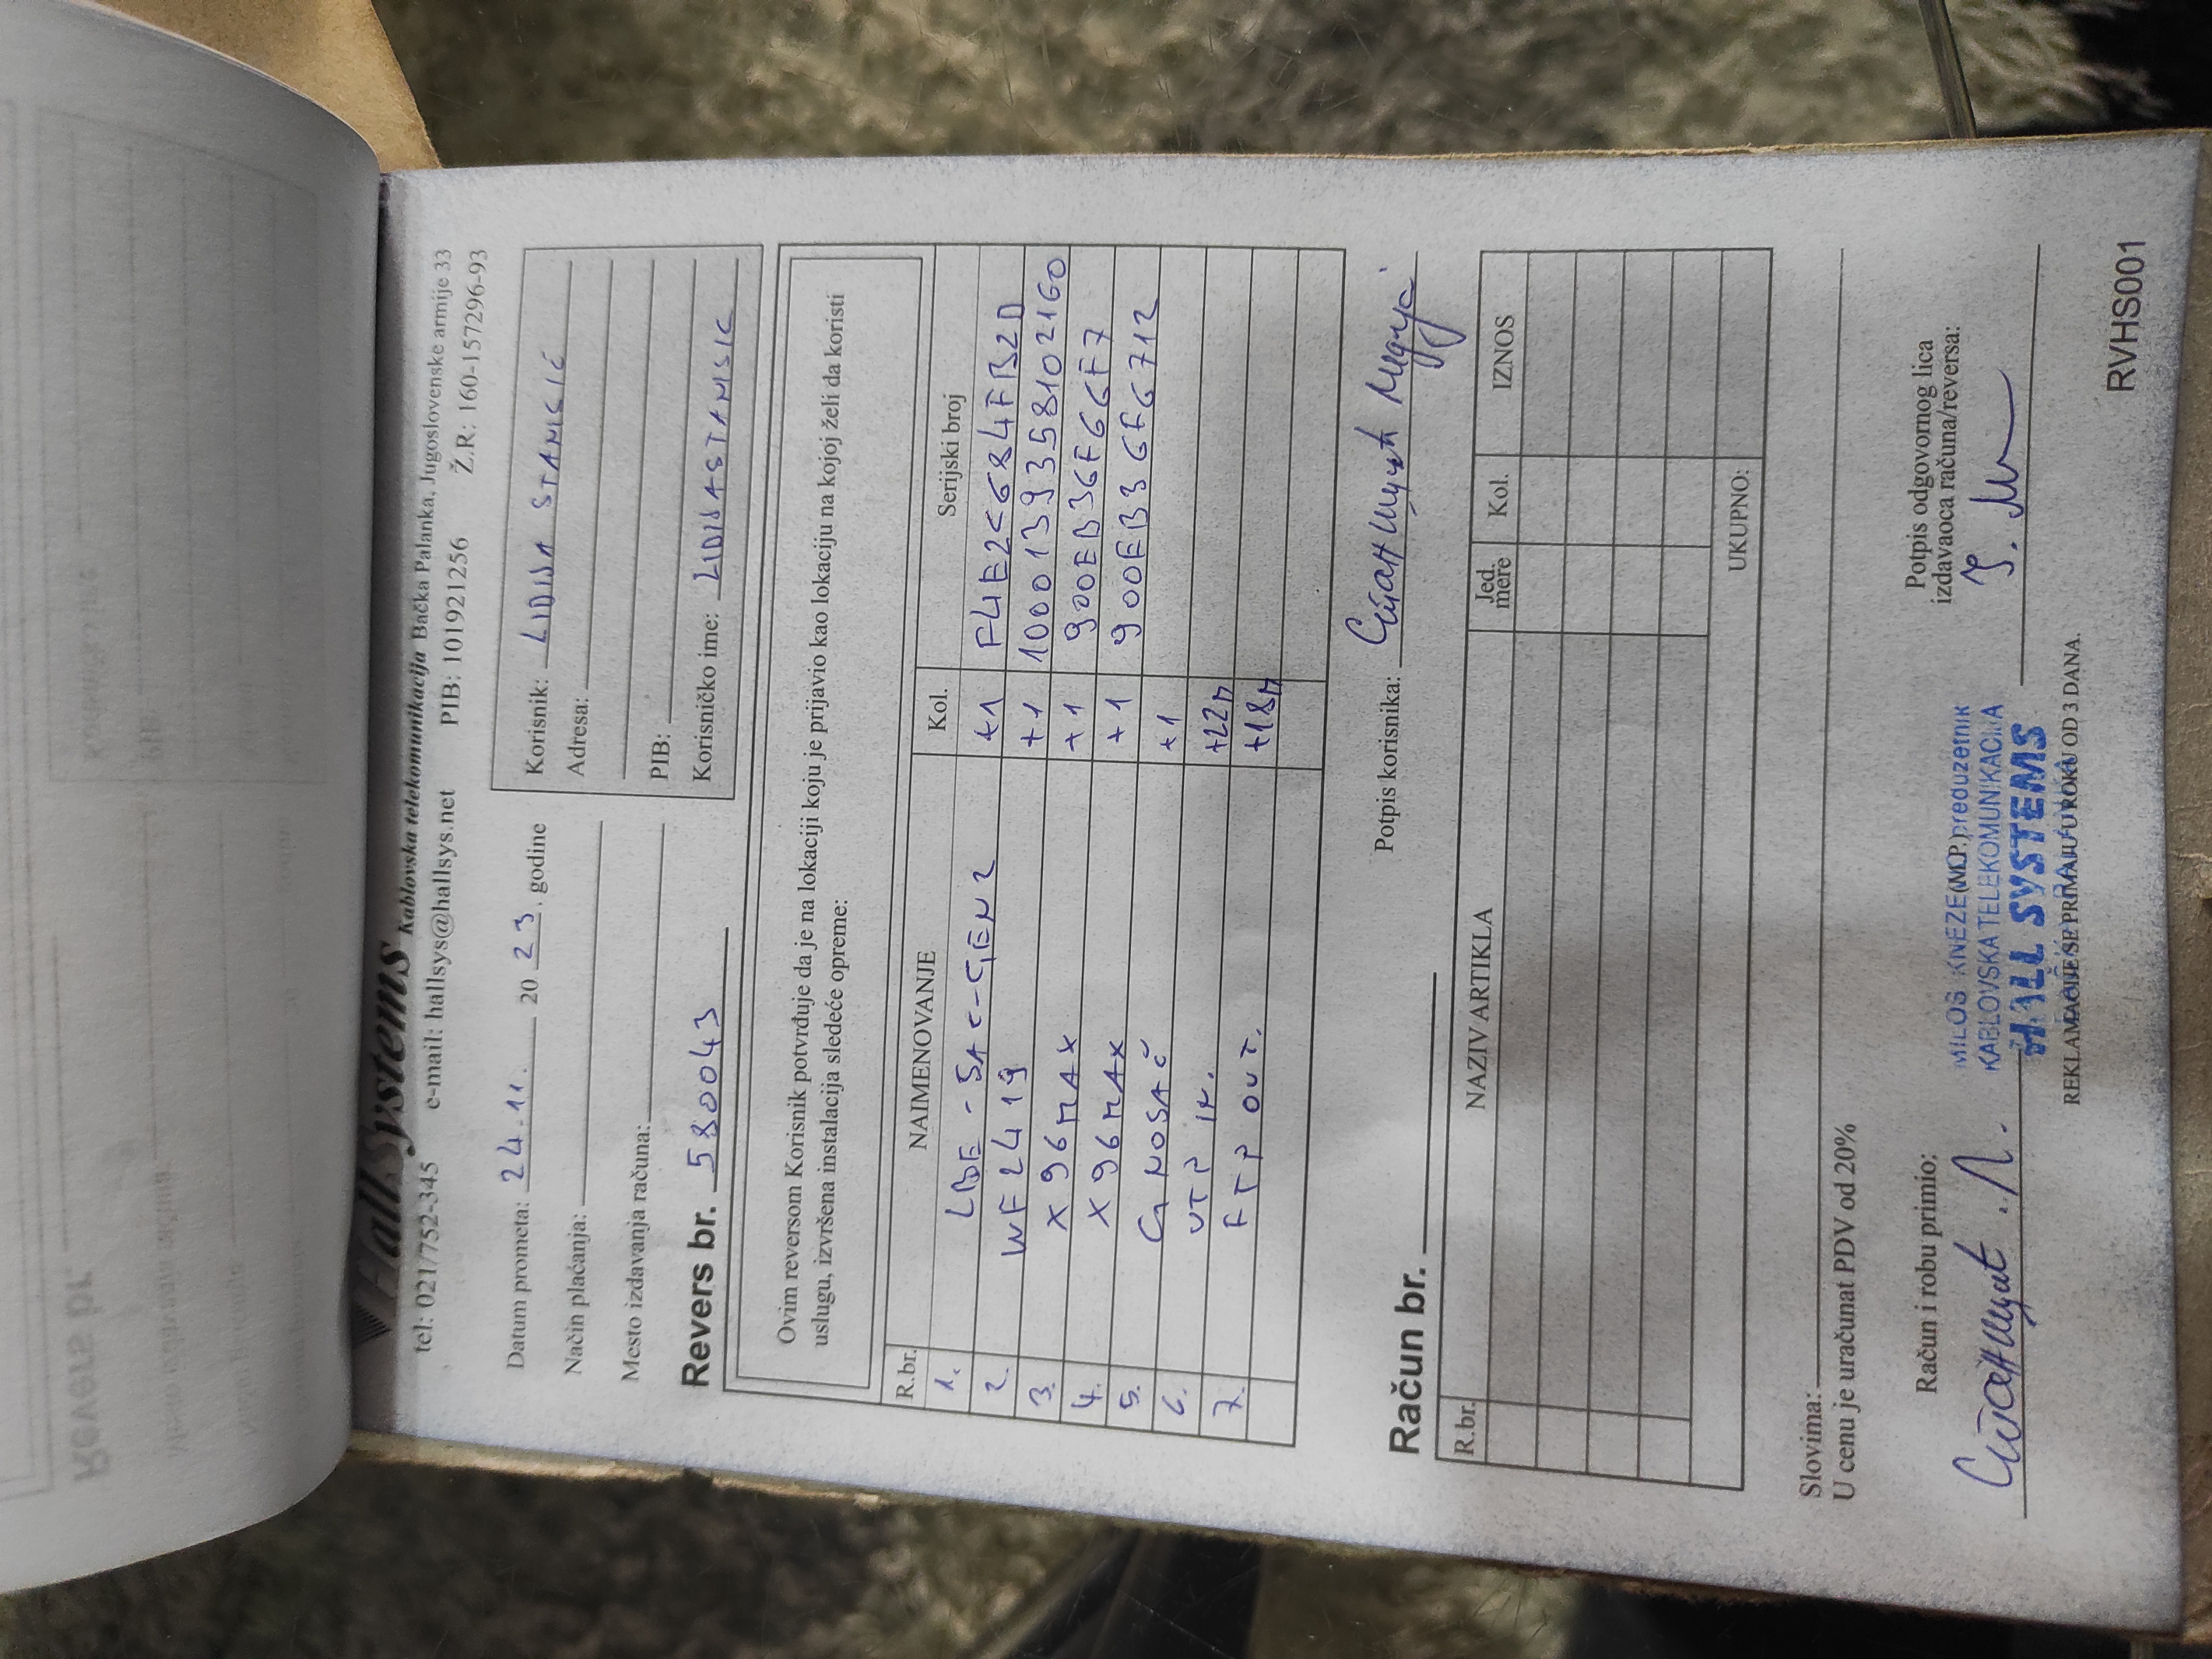 HallSystems Kablovska telekomunikacija Bačka Palanka, Jugoslovenske armije 33
tel: 021/752-345 e-mail: hallsys@hallsys.net PIB: 101921256 Ž.R: 160-157296-93
Datum prometa: 24.11. 2023. godine
Način plaćanja:
Mesto izdavanja računa:
Revers br. 580043
Korisnik: LIDIJA STANIŠIĆ
Adresa:
PIB:
Korisničko ime: LIDIJASTANISIC
Ovim reversom Korisnik potvrđuje da je na lokaciji koju je prijavio kao lokaciju na kojoj želi da koristi
uslugu, izvršena instalacija sledeće opreme:
R.br. NAIMENOVANJE Kol. Serijski broj
1. LBE-5AC-GEN2 +1 F4E2C684FB2D
2. WF2419 +1 1000139358102160
3. X96MAX +1 900EB36F66F7
4. X96MAX +1 900EB36F6712
5. G NOSAČ +1
6. UTP IN. +22m
7. FTP OUT. +18m
Potpis korisnika:
Račun br.
R.br. NAZIV ARTIKLA Jed. mere Kol. IZNOS
UKUPNO:
Slovima:
U cenu je uračunat PDV od 20%
Račun i robu primio:
Potpis odgovornog lica
izdavaoca računa/reversa:
(M.P.)
MILOŠ KNEŽEV preduzetnik
KABLOVSKA TELEKOMUNIKACIJA
HALL SYSTEMS
REKLAMACIJE SE PRIMAJU U ROKU OD 3 DANA.
RVHS001